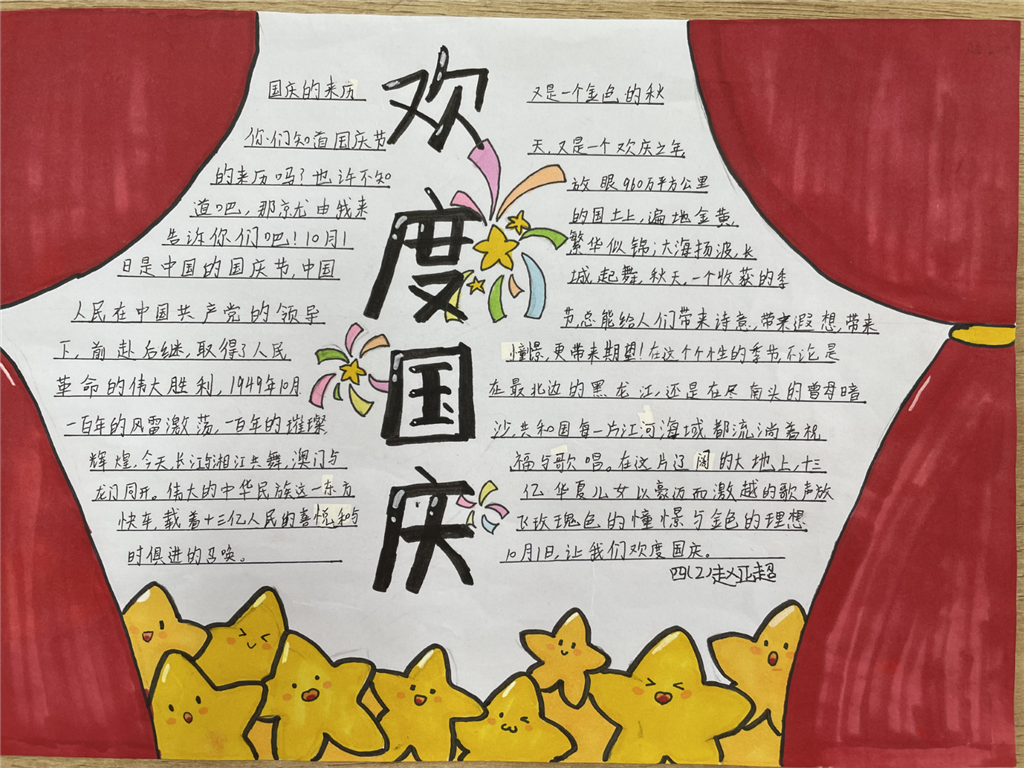 欢度国庆
国庆的来历
你们知道国庆节
的来历吗?也许不知
道吧,那就由我来
告诉你们吧!10月1
日是中国的国庆节,中国
人民在中国共产党的领导
下,前赴后继,取得了人民
革命的伟大胜利,1949年10月
一百年的风雷激荡,一百年的璀璨
辉煌,今天长江与湘江共舞,澳门与
龙门同开。伟大的中华民族这一东方
快车,载着十三亿人民的喜悦和与
时俱进的召唤。
又是一个金色的秋
天,又是一个欢庆之年
放眼960万平方公里
的国土上,遍地金黄,
繁华似锦;大海扬波,长
城起舞,秋天,一个收获的季
节,总能给人们带来诗意,带来遐想,带来
憧憬,更带来期望!在这个个性的季节,不论是
在最北边的黑龙江,还是在尽南头的曾母暗
沙,共和国每一片江河海域都流淌着祝
福与歌唱。在这片辽阔的大地上,十三
亿华夏儿女以豪迈而激越的歌声放
飞玫瑰色的憧憬与金色的理想
10月1日,让我们欢度国庆。
四(2)赵亚超